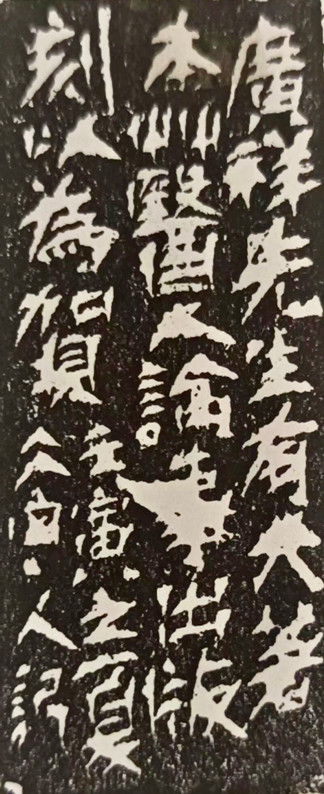 廣祥先生有大著
本艸醫論集出版
刻以為賀
壬寅之夏
白人記